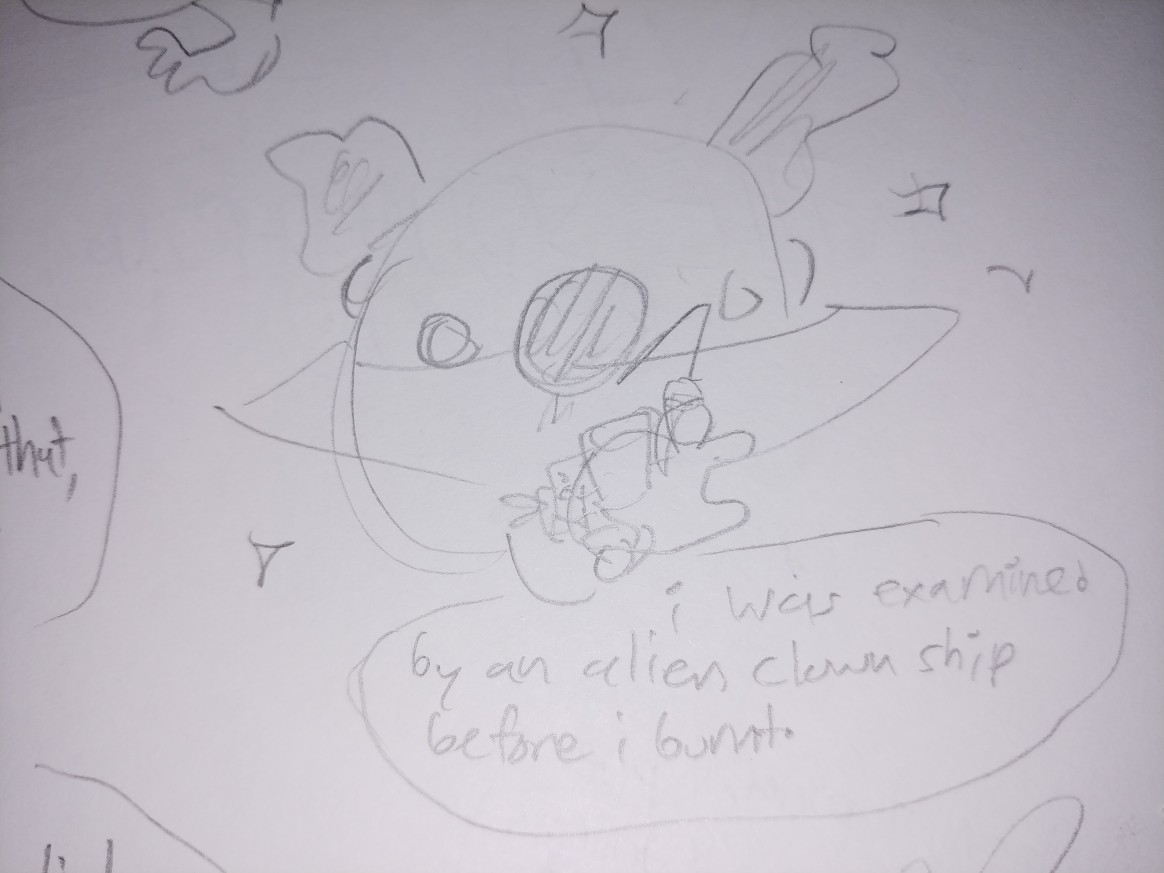 that,
i was examined
by an alien clown ship
before i burnt.